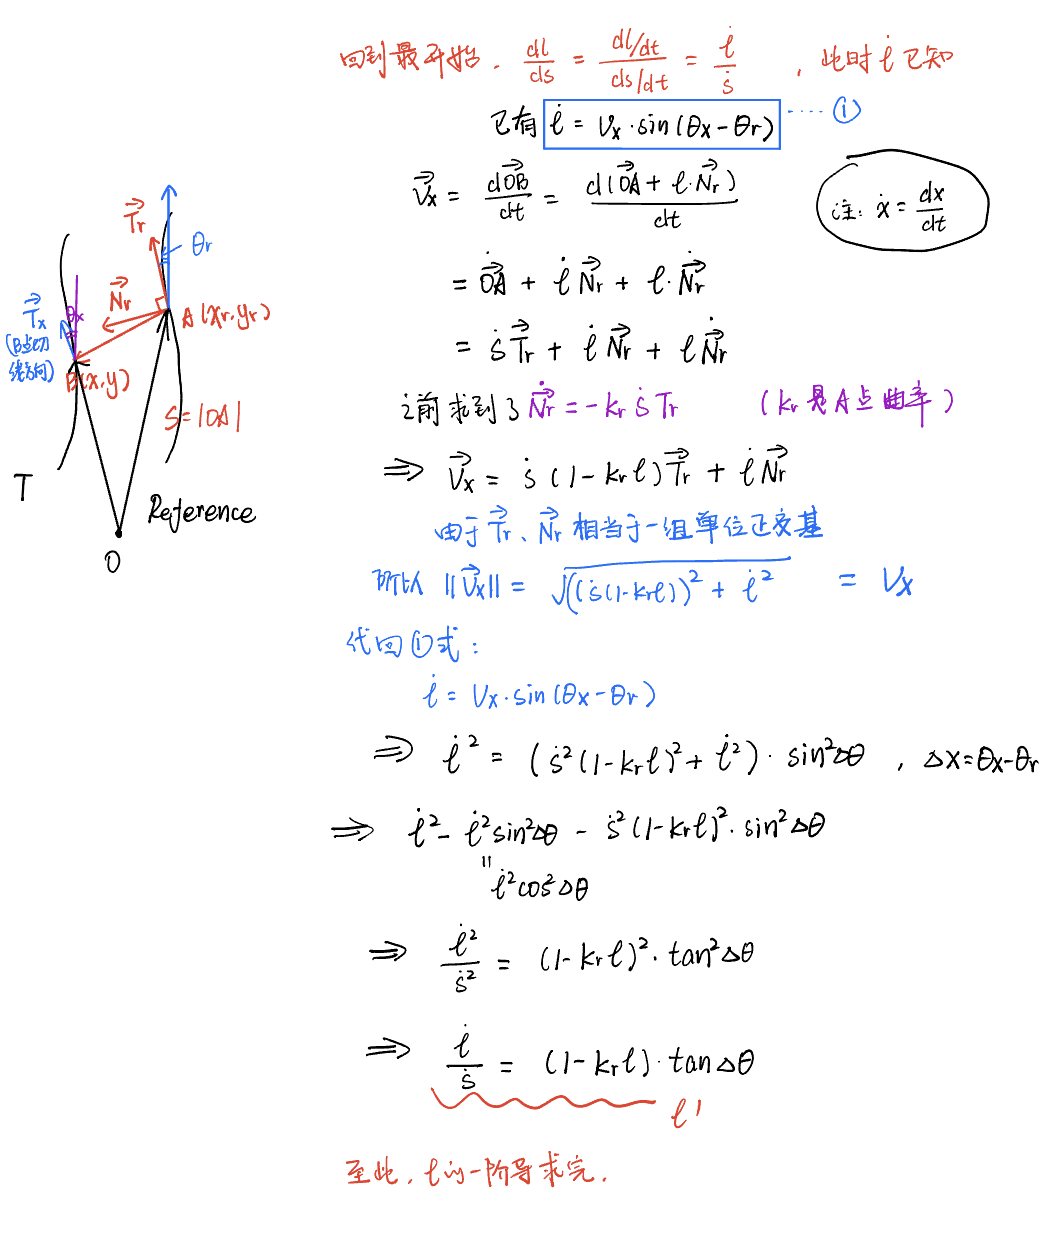 回到最开始, dl/ds = (dl/dt)/(ds/dt) = l̇/ṡ , 此时 l̇ 已知
已有 l̇ = Vx·sin(θx-θr) ······ ①
V⃗x = dO⃗B/dt = d(O⃗A + l·N⃗r)/dt
注: ẋ = dx/dt
= O⃗Ȧ + l̇ N⃗r + l·N⃗̇r
= ṡ T⃗r + l̇ N⃗r + l N⃗̇r
之前求到了 N⃗̇r = -kr ṡ Tr (kr 是A点曲率)
⇒ V⃗x = ṡ (1-krl) T⃗r + l̇ N⃗r
由于 T⃗r、N⃗r 相当于一组单位正交基
所以 ||V⃗x|| = √((ṡ(1-krl))² + l̇²) = Vx
代回①式:
l̇ = Vx·sin(θx-θr)
⇒ l̇² = (ṡ²(1-krl)² + l̇²)· sin²Δθ , Δx=θx-θr
⇒ l̇² - l̇²sin²Δθ - ṡ²(1-krl)²·sin²Δθ
=
l̇²cos²Δθ
⇒ l̇²/ṡ² = (1-krl)²·tan²Δθ
⇒ l̇/ṡ = (1-krl)·tanΔθ
l'
至此, l的一阶导求完.
T⃗r
θr
N⃗r
A(xr,yr)
T⃗x
θx
(B点切
线方向)
B(x,y)
S=|OA|
T
Reference
O